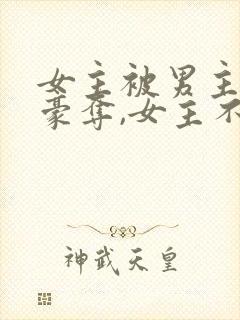 女主被男主
豪夺,女主不
神武天皇